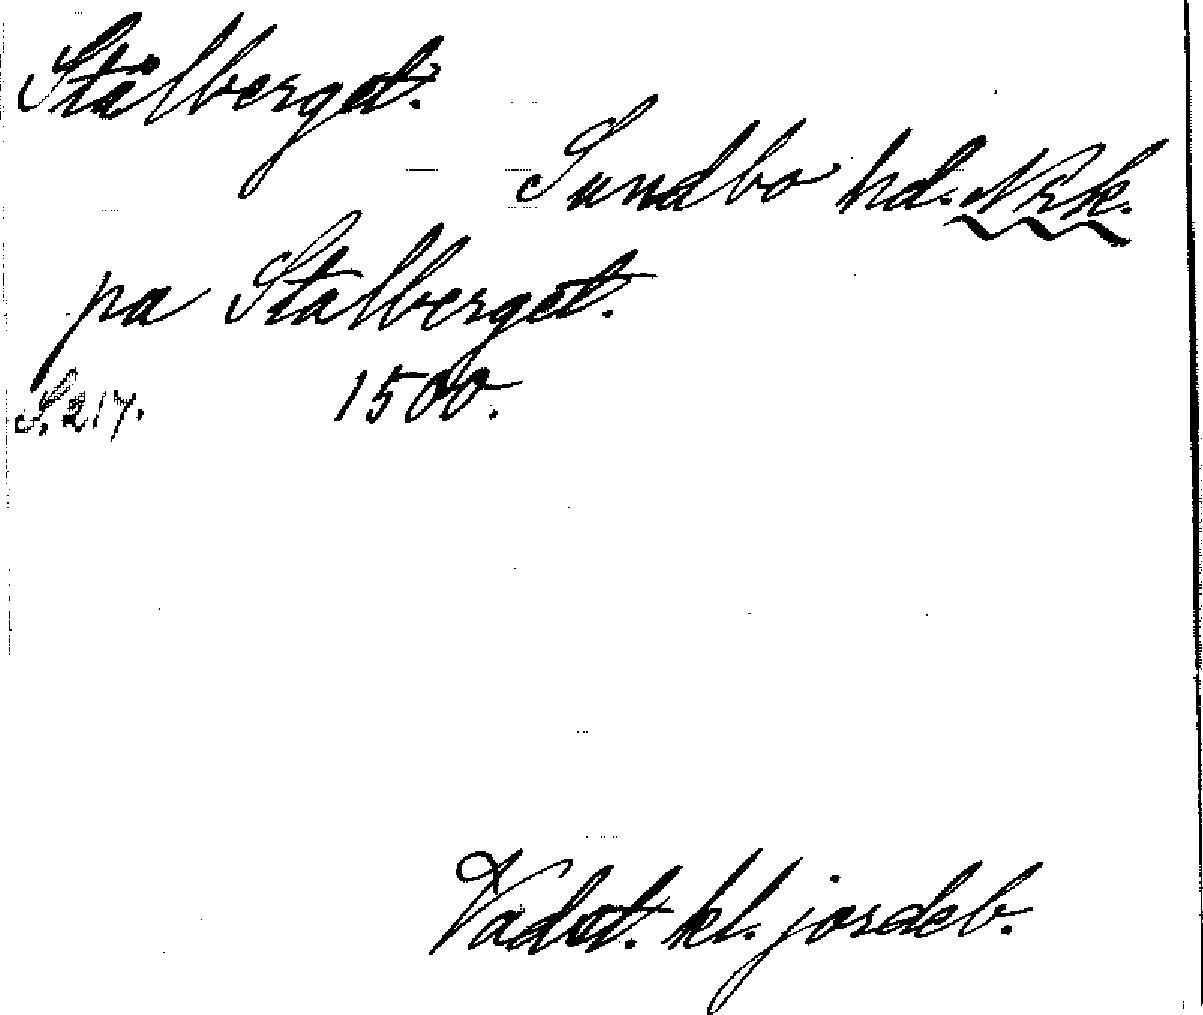 Stålberget.
Sundbo hd. Nrk.
pa Stalberget.
S. 217. 1500.
Vadst. kl. jordeb.